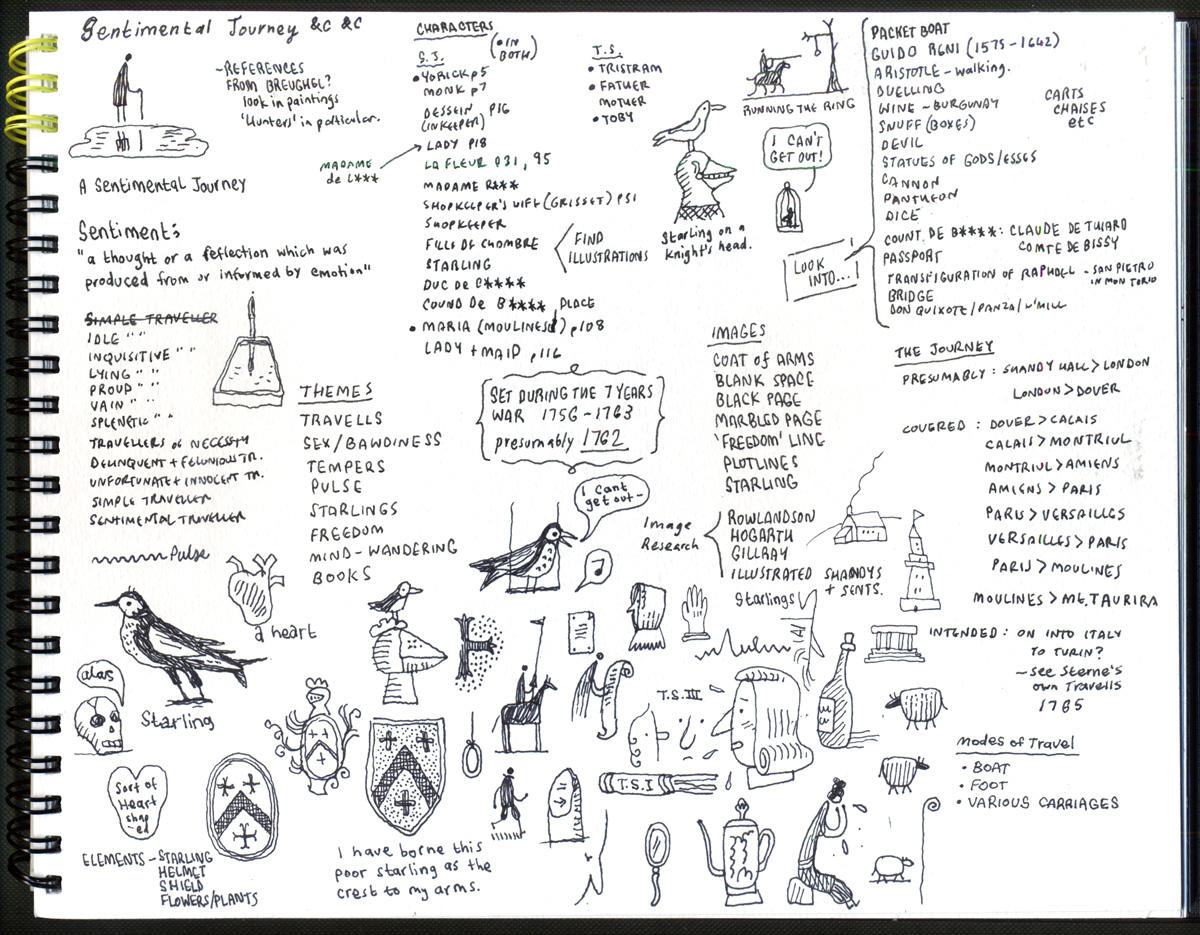 Sentimental Journey &c &c
~REFERENCES
FROM BREUGHEL?
look in paintings
'Hunters' in particular.
A Sentimental Journey
Sentiment:
"a thought or a reflection which was
produced from or informed by emotion"
SIMPLE TRAVELLER
IDLE " "
INQUISITIVE " "
LYING " "
PROUD " "
VAIN " "
SPLENETIC " "
TRAVELLERS of NECESSITY
DELINQUENT + FELONIOUS TR.
UNFORTUNATE + INNOCENT TR.
SIMPLE TRAVELLER
SENTIMENTAL TRAVELLER
Pulse
a heart
alas
Starling
Sort of
Heart
shap
-ed
ELEMENTS - STARLING
HELMET
SHIELD
FLOWERS/PLANTS
CHARACTERS
(• IN
BOTH)
S.J.
• YORICK p5
MONK p7
DESSEIN p16
(INKEEPER)
LADY p18
MADAME
de L***
LA FLEUR p31, 95
MADAME R***
SHOPKEEPER'S WIFE (GRISSET) p51
SHOPKEEPER
FILLE DE CHOMBRE
STARLING
FIND
ILLUSTRATIONS
DUC DE C****
COUND DE B**** PLACE
• MARIA (MOULINES) p108
LADY + MAID p116
T.S.
• TRISTRAM
• FATHER
MOTHER
• TOBY
THEMES
TRAVELLS
SEX/BAWDINESS
TEMPERS
PULSE
STARLINGS
FREEDOM
MIND-WANDERING
BOOKS
SET DURING THE 7 YEARS
WAR 1756-1763
presumably 1762
I can't
get out-
RUNNING THE RING
I CAN'T
GET OUT!
Starling on a
knight's head.
LOOK
INTO...!
PACKET BOAT
GUIDO RENI (1575-1642)
ARISTOTLE - walking.
DUELLING
WINE - BURGUNDY
SNUFF (BOXES)
DEVIL
STATUES OF GODS/ESSES
CANNON
PANTHEON
DICE
COUNT. DE B****: CLAUDE DE THIARD
COMTE DE BISSY
PASSPORT
TRANSFIGURATION OF RAPHAEL - SAN PIETRO
IN MONTORIO
BRIDGE
DON QUIXOTE/PANZA/W'MILL
CARTS
CHAISES
etc
IMAGES
COAT OF ARMS
BLANK SPACE
BLACK PAGE
MARBLED PAGE
'FREEDOM' LINE
PLOTLINES
STARLING
Image
Research
ROWLANDSON
HOGARTH
GILLRAY
ILLUSTRATED SHANDYS
+ SENTS.
Starlings
THE JOURNEY
PRESUMABLY: SHANDY HALL > LONDON
LONDON > DOVER
COVERED: DOVER > CALAIS
CALAIS > MONTRIUL
MONTRIUL > AMIENS
AMIENS > PARIS
PARIS > VERSAILLES
VERSAILLES > PARIS
PARIS > MOULINES
MOULINES > MT. TAURIRA
INTENDED: ON INTO ITALY
TO TURIN?
~ see Sterne's
own Travells
1765
Modes of Travel
• BOAT
• FOOT
• VARIOUS CARRIAGES
T.S. III
T.S.I
I have borne this
poor starling as the
crest to my arms.